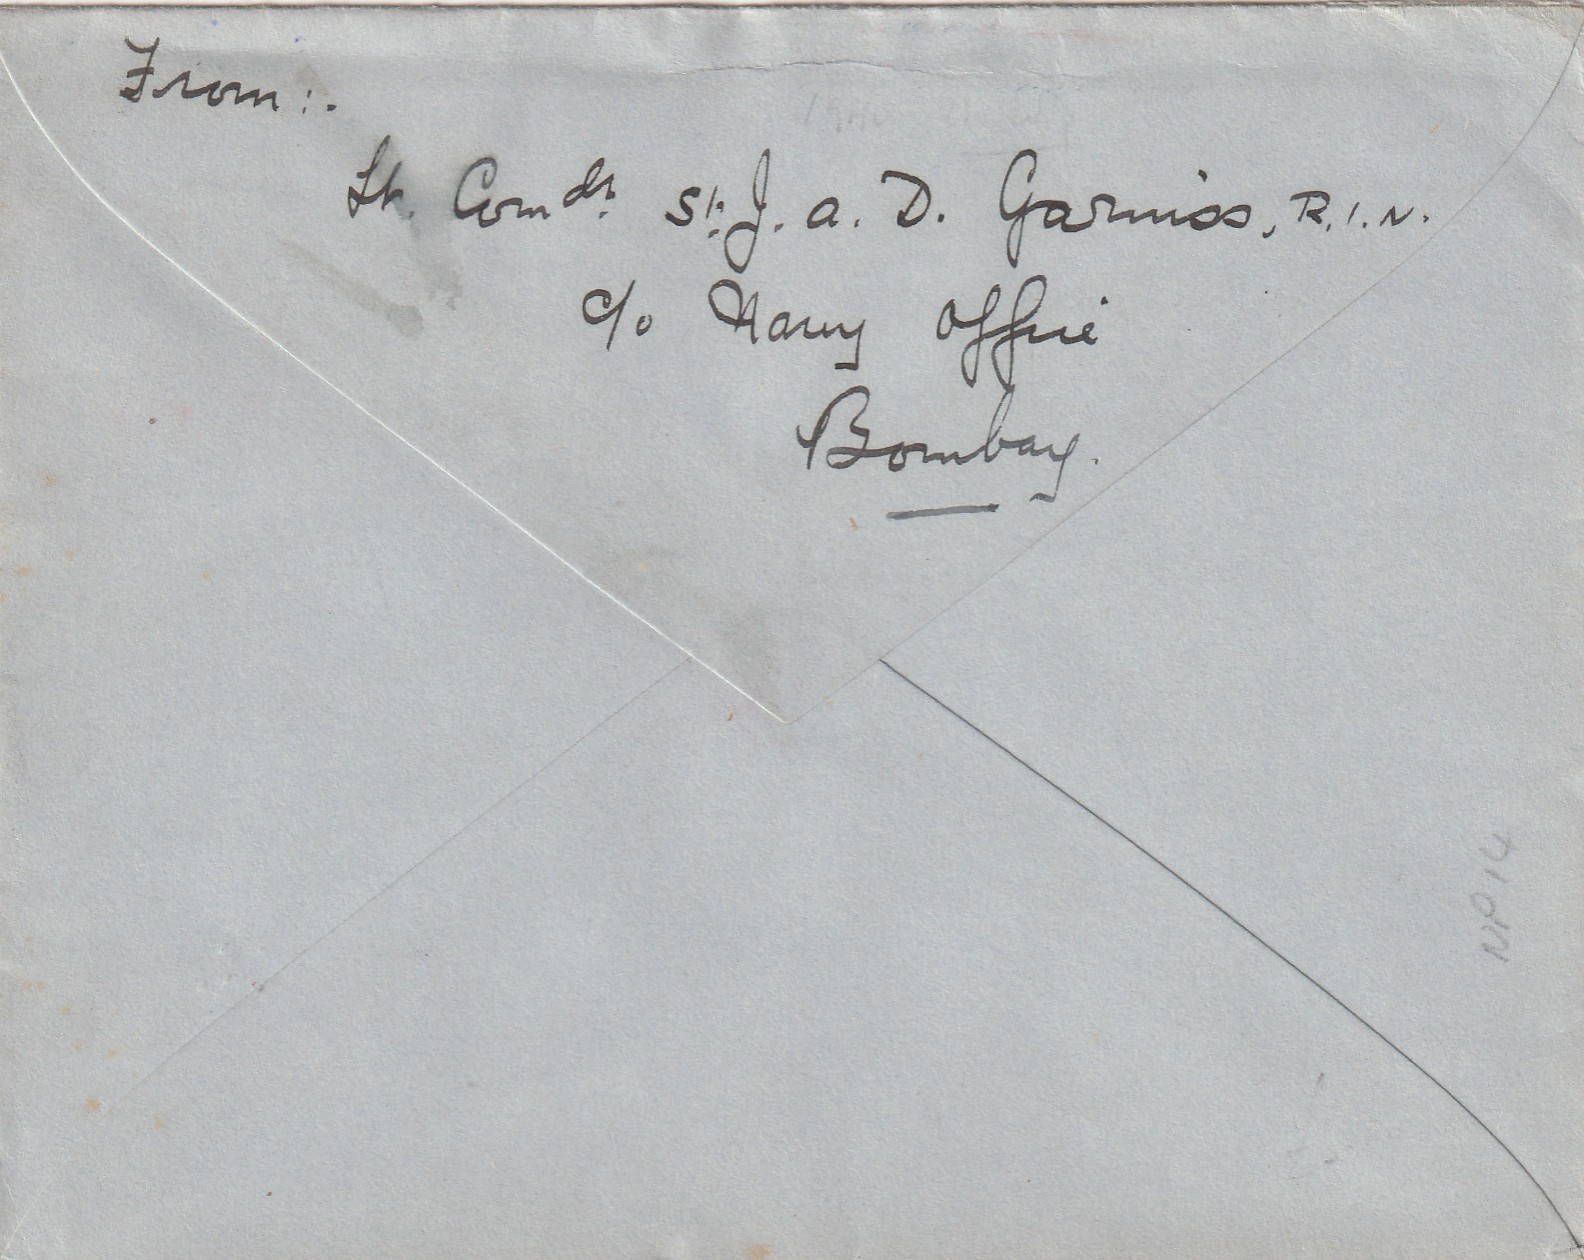 From:.
Lt. Comdr. St. J. A. D. Garniss, R.I.N.
c/o Navy Office
Bombay.
NP14